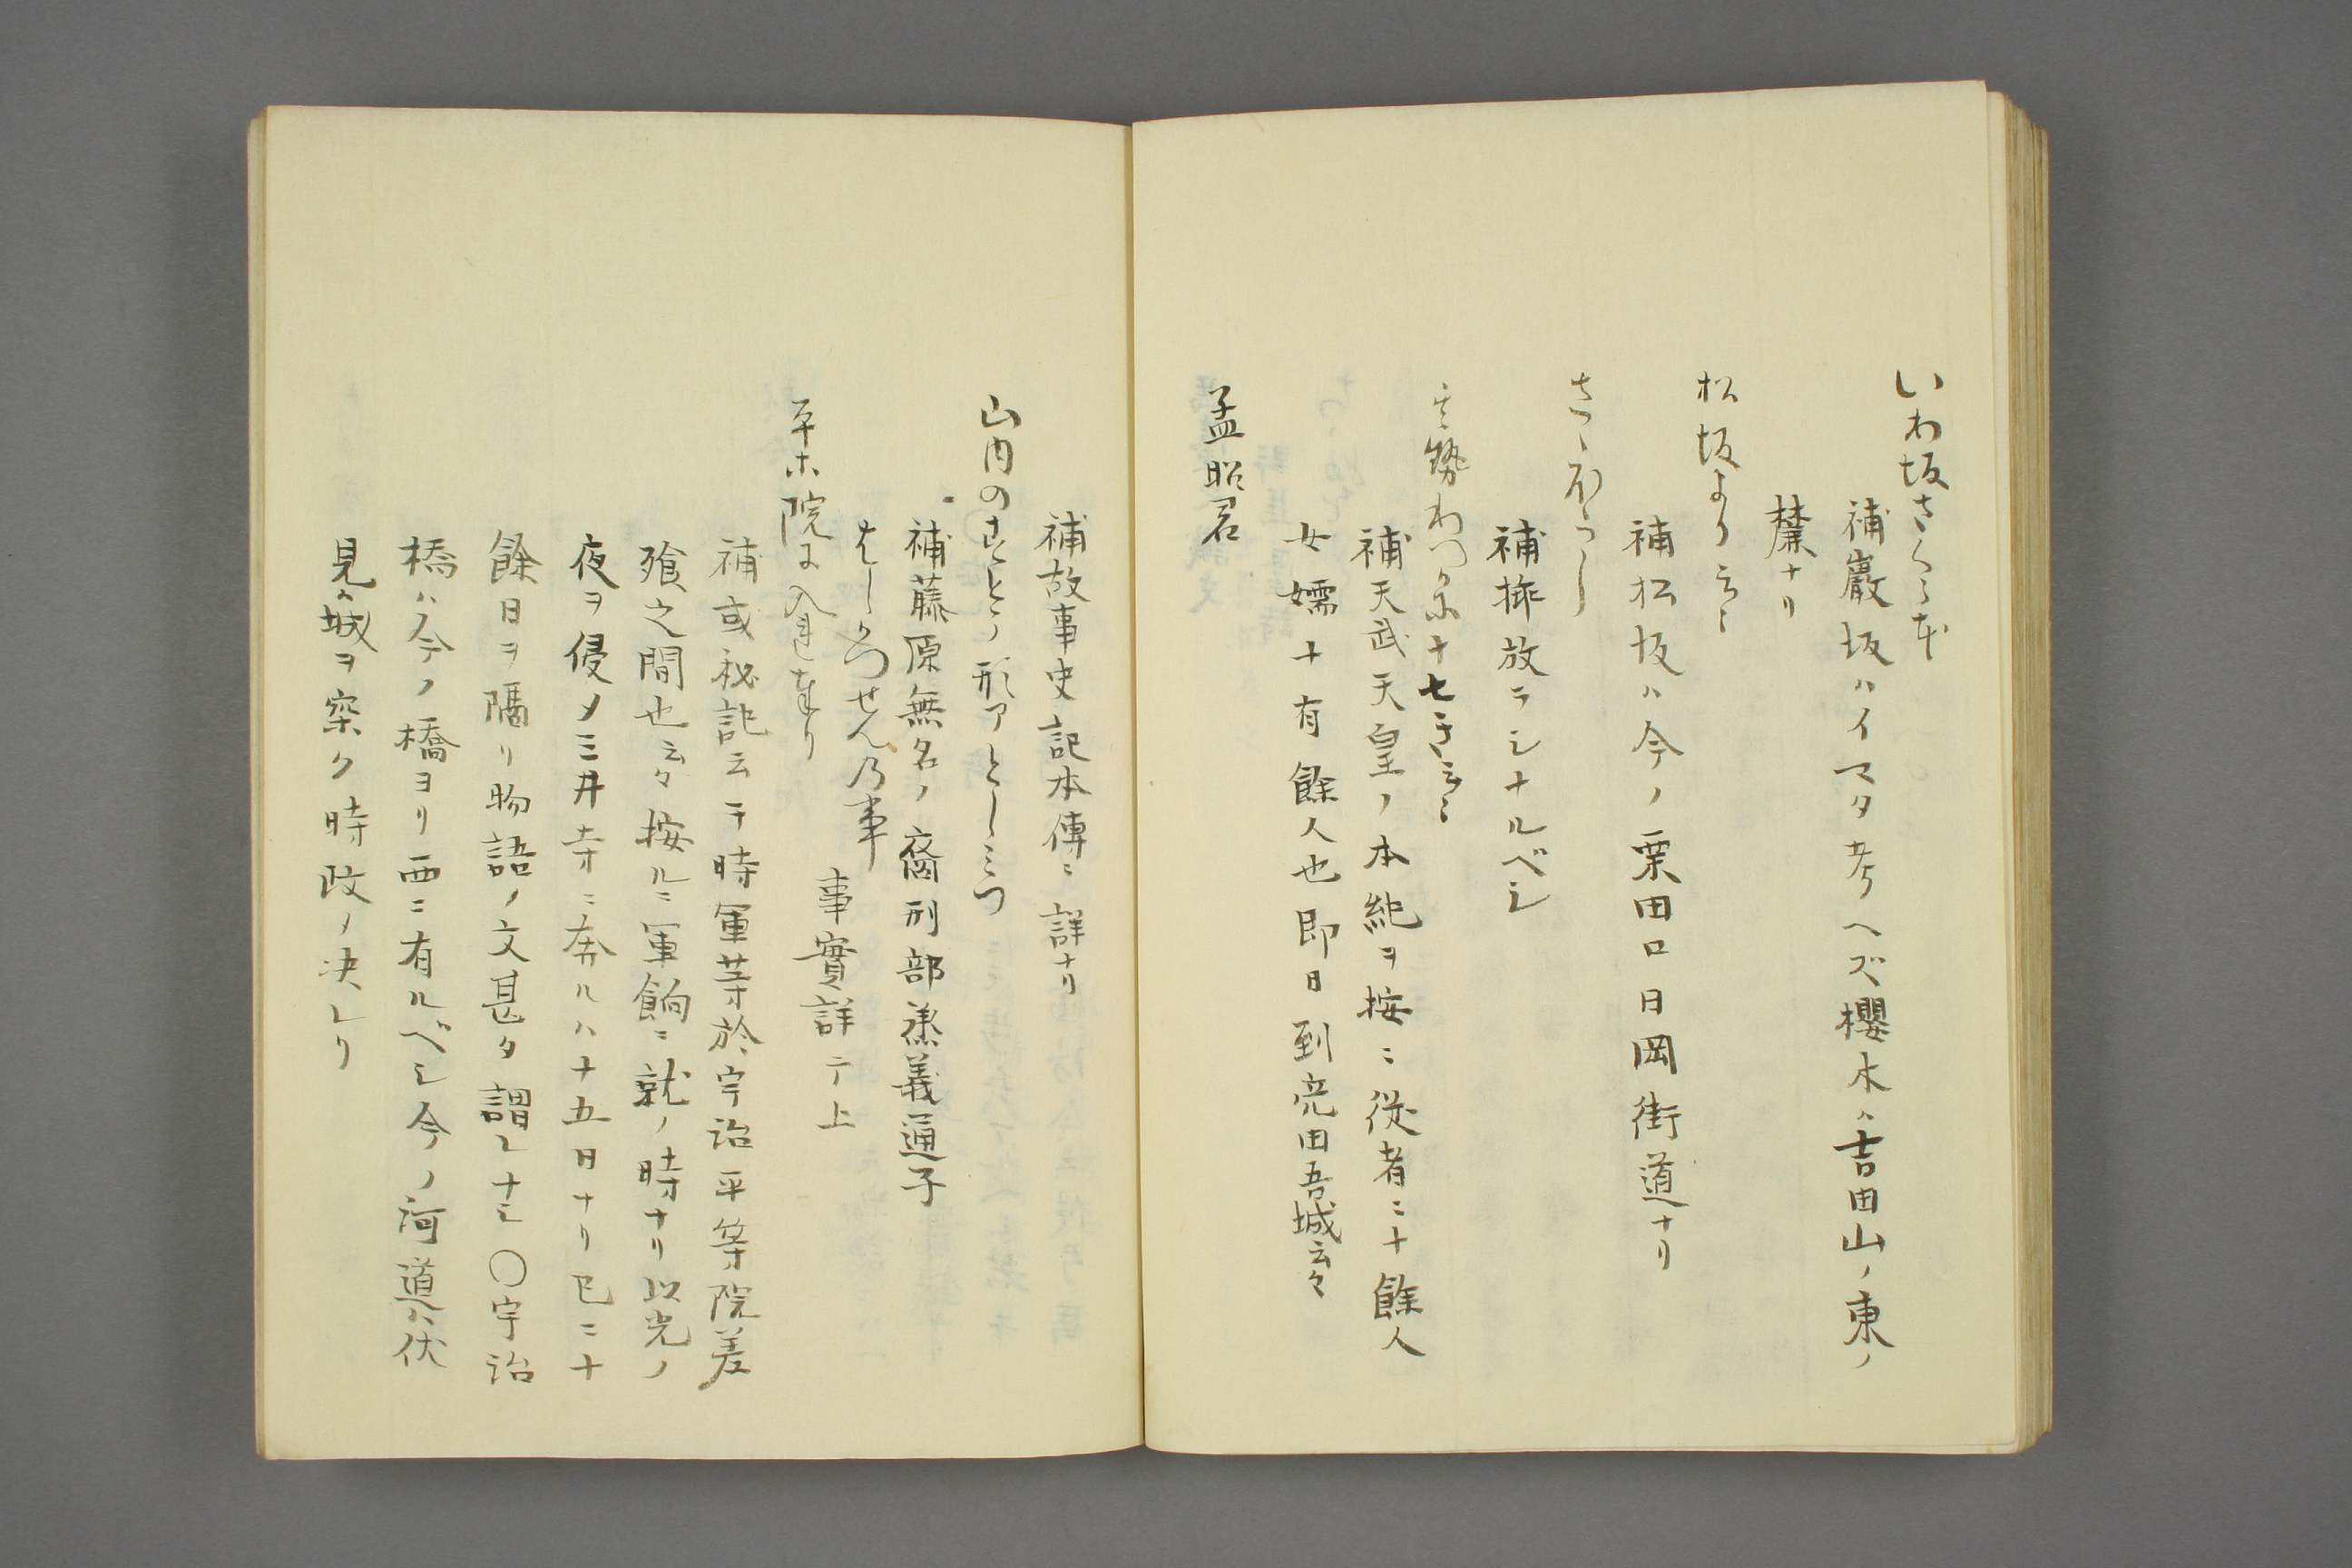 いわ坂さくら本
補巖坂ハイマタ考ヘズ櫻木ハ吉田山ノ東ノ
麓ナリ
松坂より云々
補松坂ハ今ノ粟田口日岡街道ナリ
さゝれつし
補擲放ラシナルベシ
其勢わつかに十七き云々
補天武天皇ノ本紀ヲ按ニ從者二十餘人
女孺十有餘人也即日到菟田吾城云々
孟昭君
補故事史記本傳ニ詳ナリ
山内のすとう刑アとしミつ
補藤原無名ノ裔刑部丞義通子
はしかつせんの事
事實詳于上
平等院に入奉り
補或秘記云于時軍等於宇治平等院差
飡之間也云々按ルニ軍餉ニ就ノ時ナリ以光ノ
夜ヲ侵メ三井寺ニ奔ルハ十五日ナリ已ニ十
餘日ヲ隔リ物語ノ文甚タ謂レナシ〇宇治
橋ハ今ノ橋ヨリ西ニ有ルベシ今ノ河道ハ伏
見ノ城ヲ築ク時改ノ决レリ